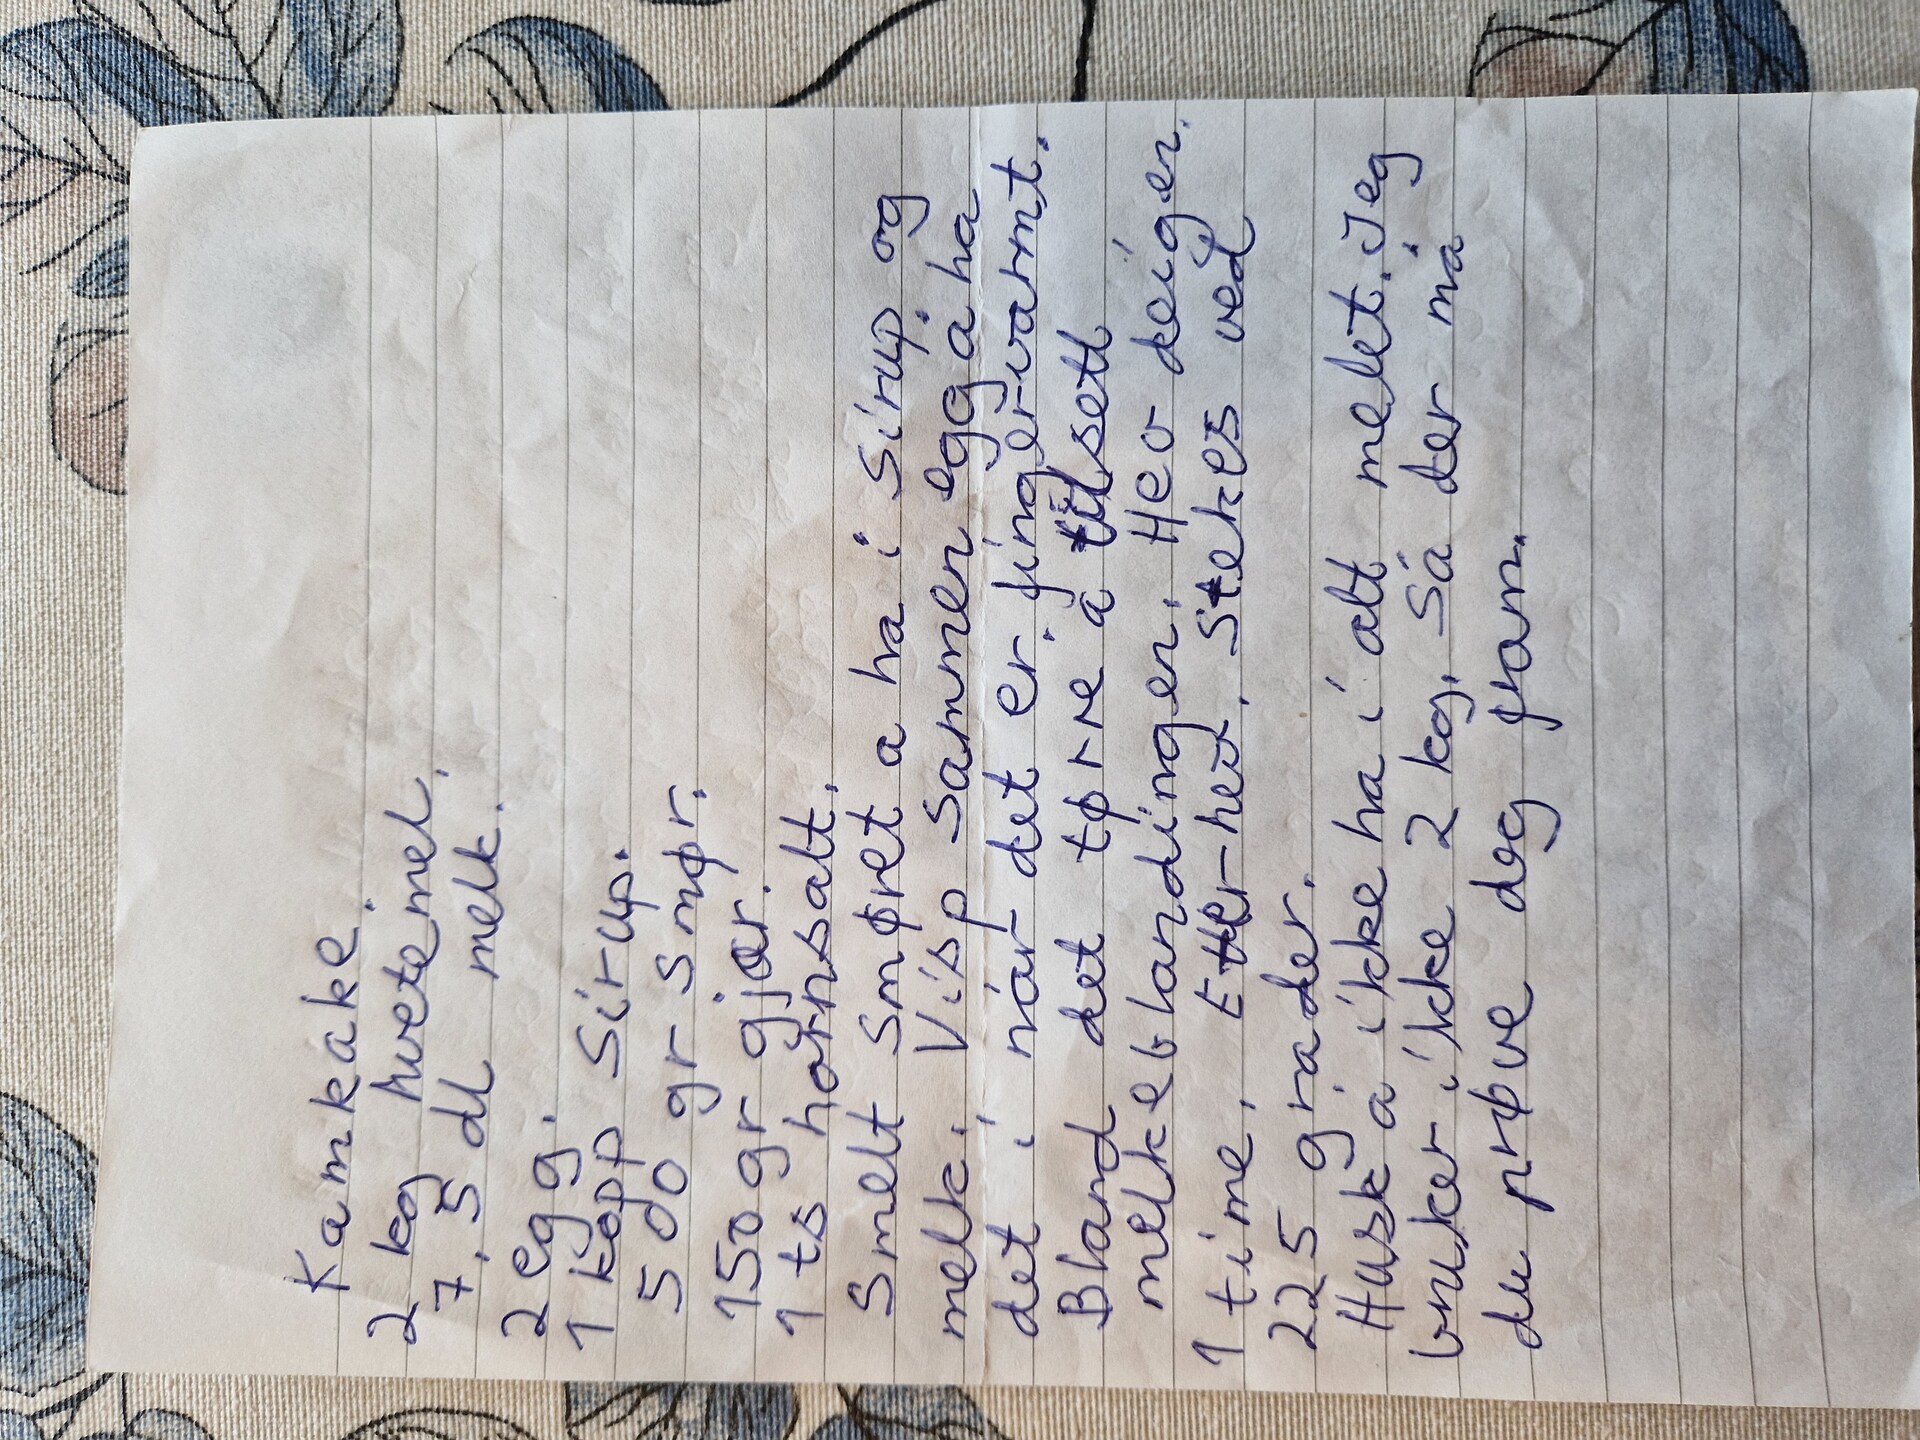 Kamkake.
2 kg hvetemel.
7,5 dl melk.
2 egg.
1 kopp sirup.
500 gr smør.
150 gr gjær.
1 ts hornsalt.
Smelt smøret å ha i sirup og
melk. Visp sammen egg å ha
det i når det er fingervarmt.
Bland det tørre å tilsett
melkeblandingen. Hev deigen
1 time. Etterhev. Stekes ved
225 grader.
Husk å ikke ha i alt melet. Jeg
bruker ikke 2 kg. Så der må
du prøve deg fram.